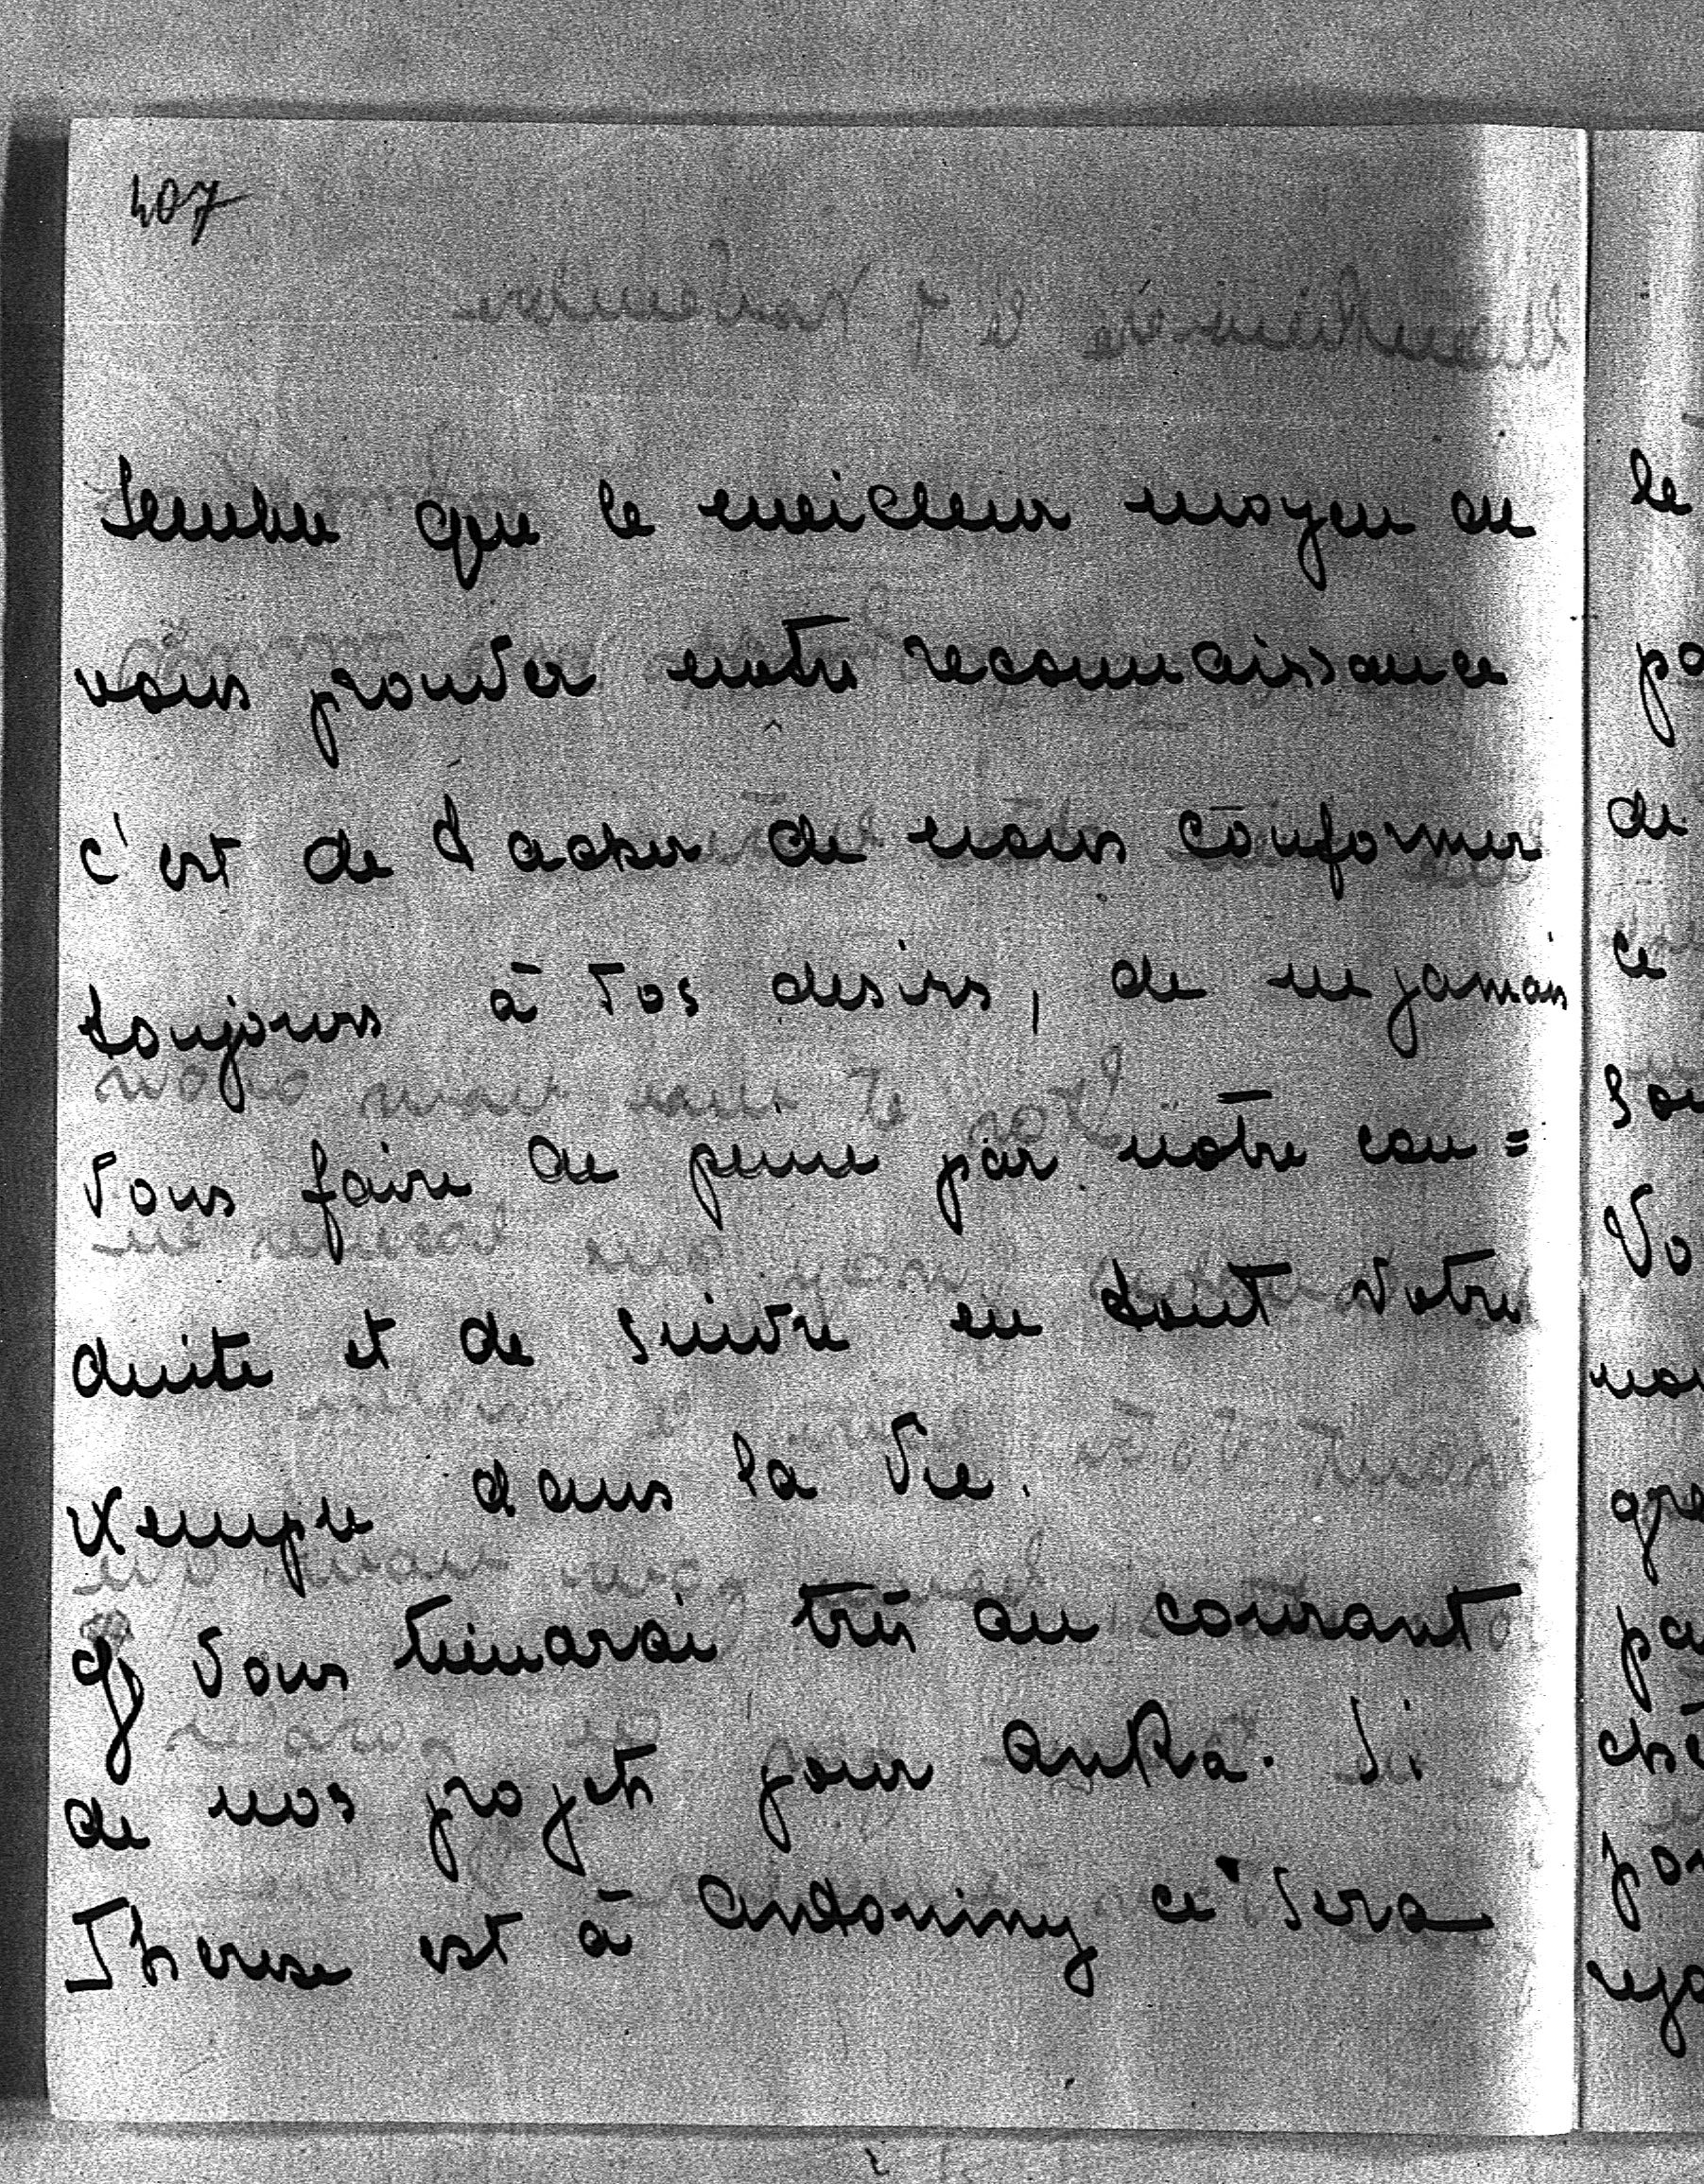 407
semble que le meilleur moyen de
vous prouver notre reconnaissance
c'est de tacher de nous conformer
toujours à vos desirs, de ne jamais
vous faire de peine par notre con=
duite et de suivre en tout votre
exemple dans la vie.
Je vous tienarai très au courant
de nos projets pour Anka. Si
Therese est à Antoniny ce sera